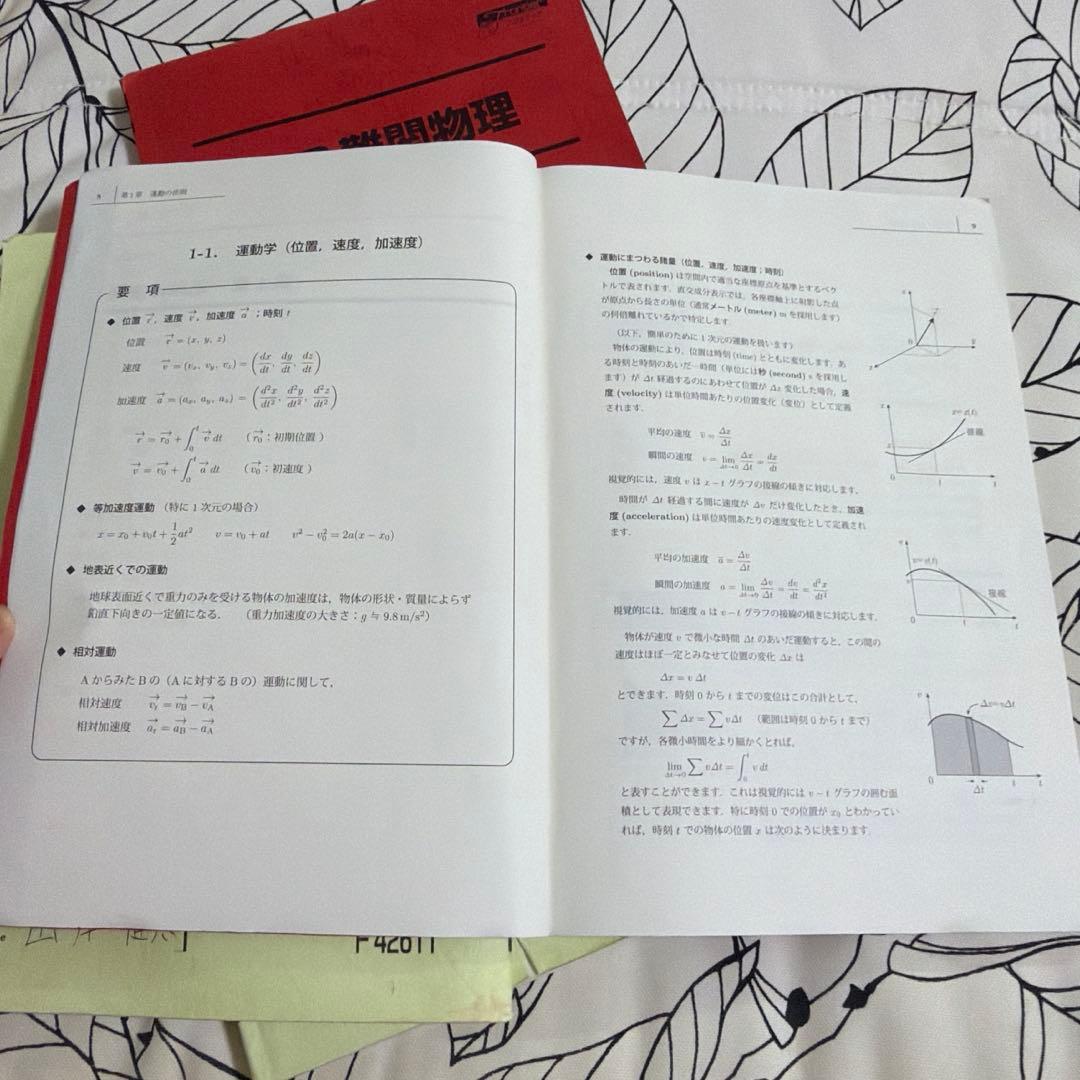 難関物理
8 第1章 運動の法則
1-1. 運動学（位置，速度，加速度）
要 項
◆ 位置 r⃗, 速度 v⃗, 加速度 a⃗ ；時刻 t
位置 r⃗ = (x, y, z)
速度 v⃗ = (vₓ, v_y, v_z) = (dx/dt, dy/dt, dz/dt)
加速度 a⃗ = (aₓ, a_y, a_z) = (d²x/dt², d²y/dt², d²z/dt²)
r⃗ = r₀⃗ + ∫₀ᵗ v⃗ dt （ r₀⃗ ；初期位置 ）
v⃗ = v₀⃗ + ∫₀ᵗ a⃗ dt （ v₀⃗ ；初速度 ）
◆ 等加速度運動 （特に 1 次元の場合）
x = x₀ + v₀t + 1/2 at² v = v₀ + at v² − v₀² = 2a(x − x₀)
◆ 地表近くでの運動
地球表面近くで重力のみを受ける物体の加速度は，物体の形状・質量によらず
鉛直下向きの一定値になる． （重力加速度の大きさ；g ≒ 9.8 m/s²）
◆ 相対運動
A からみた B の（A に対する B の）運動に関して，
相対速度 v_r⃗ = v_B⃗ − v_A⃗
相対加速度 a_r⃗ = a_B⃗ − a_A⃗
9
◆ 運動にまつわる諸量（位置，速度，加速度；時刻）
位置 (position) は空間内で適当な座標原点を基準とするベク
トルで表されます．直交成分表示では，各座標軸上に射影した点
が原点から長さの単位（通常メートル (meter) m を採用します）
の何倍離れているかで特定します．
（以下，簡単のために 1 次元の運動を扱います）
物体の運動により，位置は時刻 (time) とともに変化します．あ
る時刻と時刻のあいだ―時間（単位には秒 (second) s を採用し
ます）が Δt 経過するのにあわせて位置が Δx 変化した場合，速
度 (velocity) は単位時間あたりの位置変化（変位）として定義
されます．
平均の速度 v̄ = Δx/Δt
瞬間の速度 v = lim Δt→0 Δx/Δt = dx/dt
視覚的には，速度 v は x − t グラフの接線の傾きに対応します．
時間が Δt 経過する間に速度が Δv だけ変化したとき，加速
度 (acceleration) は単位時間あたりの速度変化として定義され
ます．
平均の加速度 ā = Δv/Δt
瞬間の加速度 a = lim Δt→0 Δv/Δt = dv/dt = d²x/dt²
視覚的には，加速度 a は v − t グラフの接線の傾きに対応します．
物体が速度 v で微小な時間 Δt のあいだ運動すると，この間の
速度はほぼ一定とみなせて位置の変化 Δx は
Δx = v Δt
とできます．時刻 0 から t までの変位はこの合計として，
∑ Δx = ∑ vΔt （範囲は時刻 0 から t まで）
ですが，各微小時間をより細かくとれば，
lim Δt→0 ∑ v Δt = ∫₀ᵗ v dt
と表すことができます．これは視覚的には v − t グラフの囲む面
積として表現できます．特に時刻 0 での位置が x₀ とわかってい
れば，時刻 t での物体の位置 x は次のように決まります．
z
0
y
x
x
x=x(t)
接線
x
0
t
t
v
v=v(t)
接線
0
t
t
v
Δx=vΔt
0
t
t
Δt
F42611